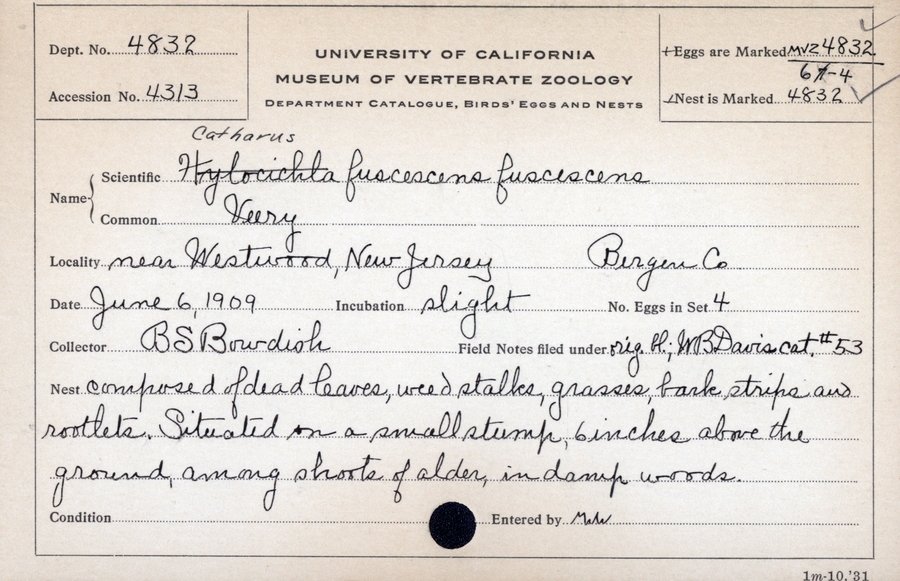 Dept. No. 4832
Accession No. 4313
UNIVERSITY OF CALIFORNIA
MUSEUM OF VERTEBRATE ZOOLOGY
DEPARTMENT CATALOGUE, BIRDS' EGGS AND NESTS
Eggs are Marked MVZ 4832
Nest is Marked 4832
Catharus
Name Scientific Hylocichla fuscescens fuscescens
Common Veery
Locality near Westwood, New Jersey Bergen Co.
Date June 6, 1909 Incubation slight No. Eggs in Set 4
Collector BS Bowdish Field Notes filed under orig. bl; WB Davis cat. #53
Nest composed of dead leaves, weed stalks, grasses, bark strips and
rootlets. Situated on a small stump, 6 inches above the
ground, among shoots of alder, in damp woods.
Condition Entered by
1m-10,'31